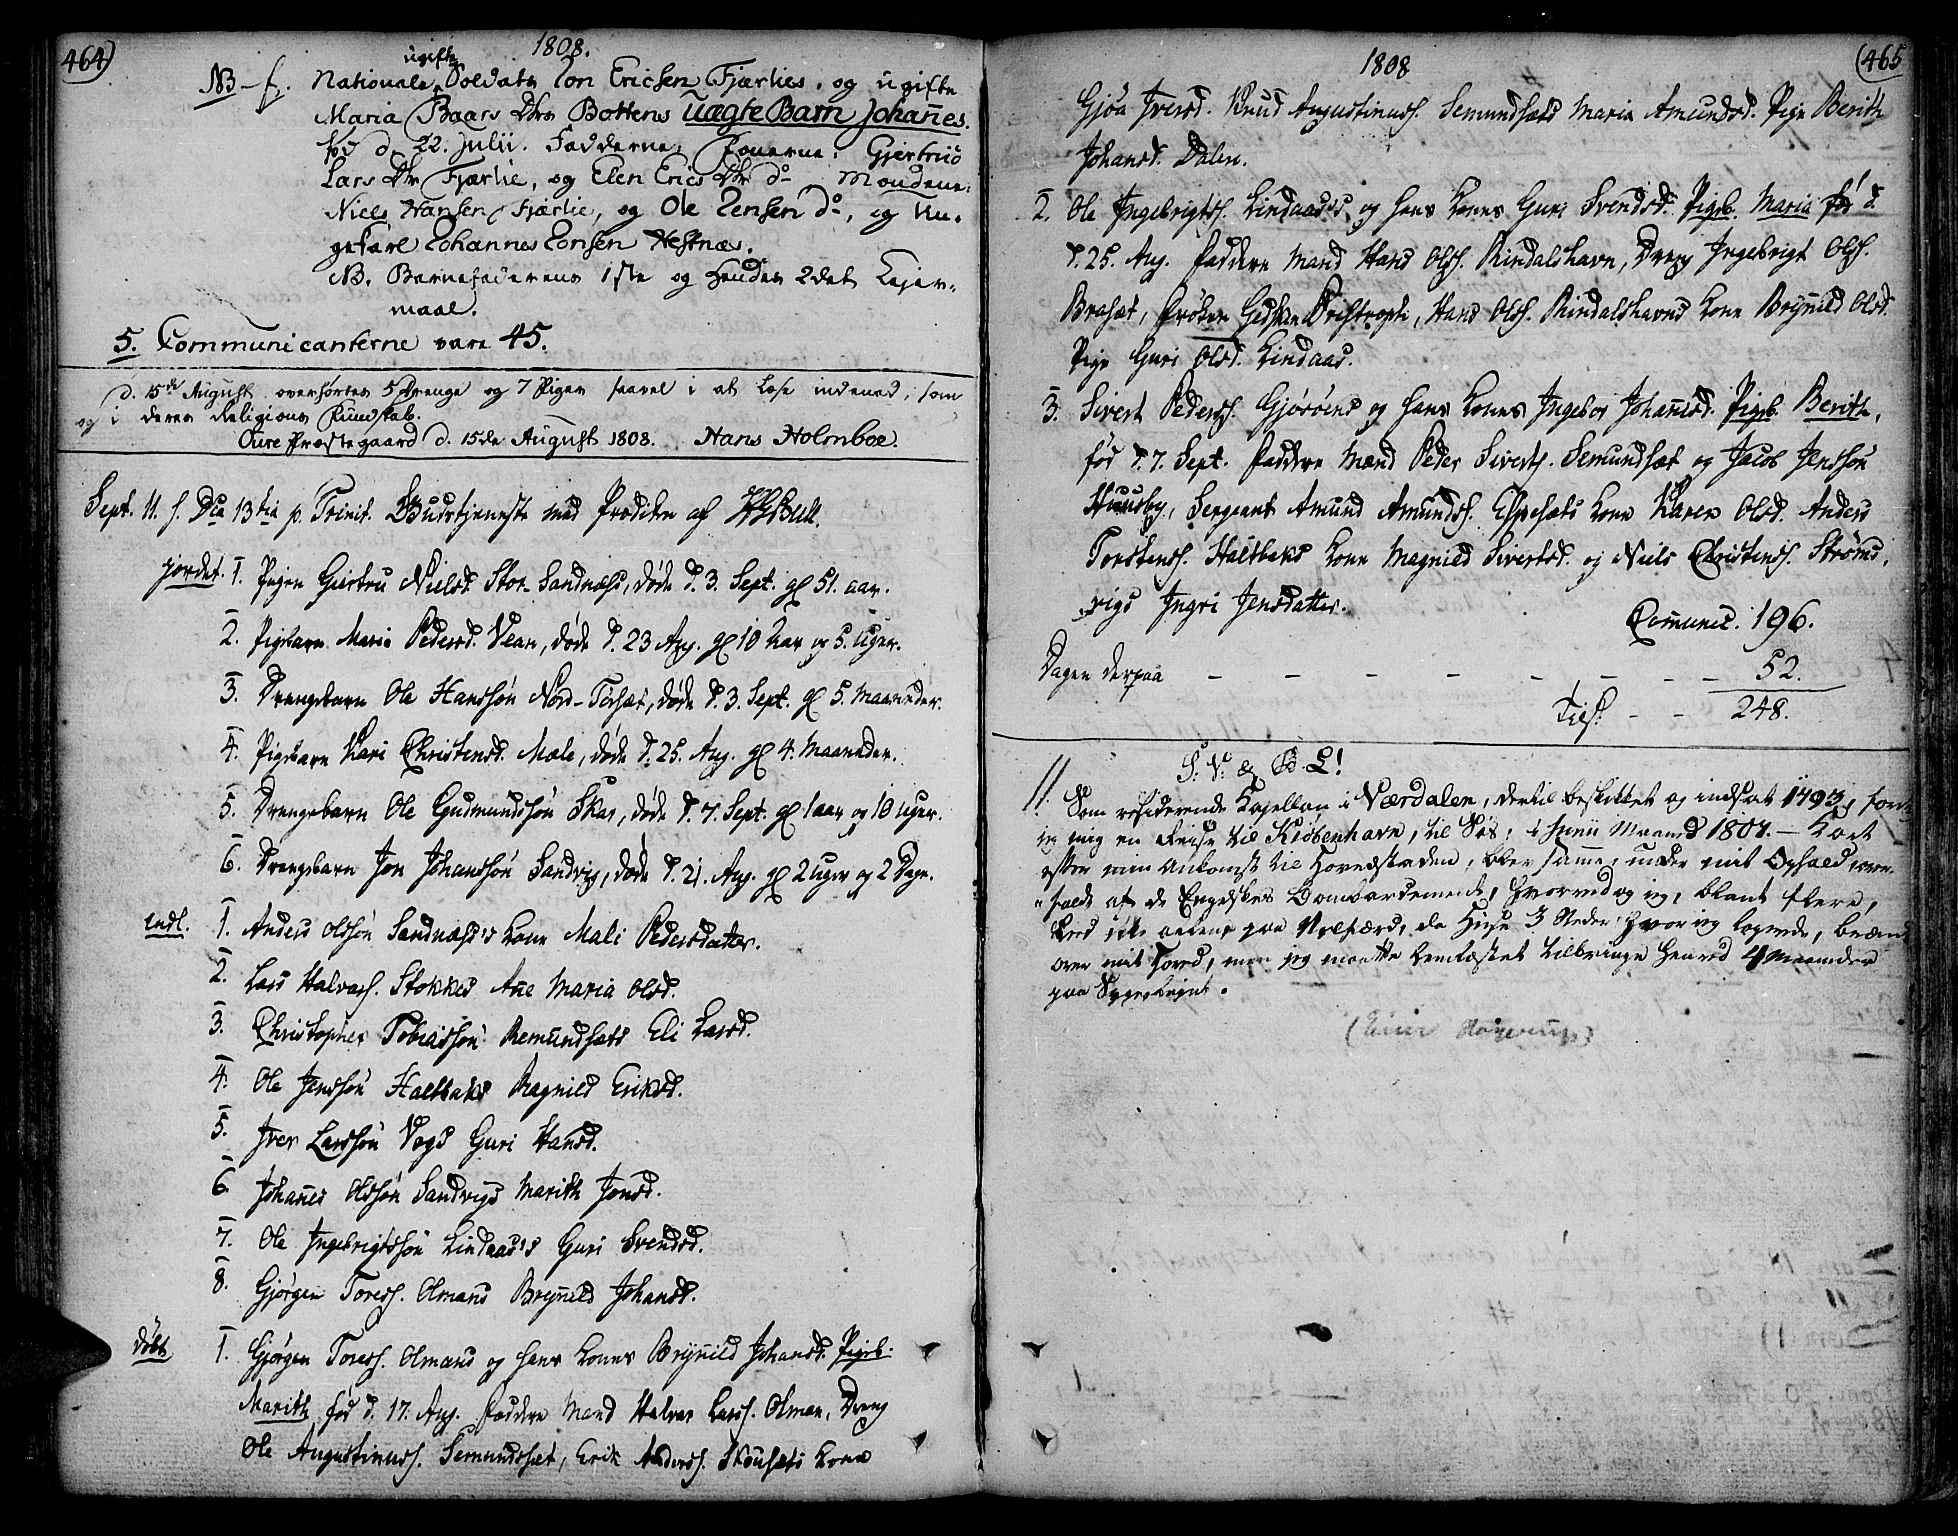 464)
1808.
ugifte
NB – f. Nationale Soldats Jon Ericsen Fjærlies, og ugifte
Maria Baars Dtrs Bottens Uægte Barn Johañes.
fød d. 22. Julii. Fadderne: Konerne: Gjertrud
Lars Dtr Fjærlie, og Elen Erics Dtr do Mændene:
Niels Hansen Fjærlie, og Ole Jensen do, og Un-
gekarl Johannes Jonsen Hestnæs.
NB. Barnefaderens 1ste og Hendes 2det Lejer-
maal.
5. Communicanterne vare 45.
d. 15de August overhørtes 5 Drenge og 7 Piger saavel i at læse indenad, som
og i deres Religions Kundskab.
Oure Præstegaard d. 15de August 1808. Hans Holmboe.
Sept. 11. f. Dca 13tia p. Trinit. Gudstjeneste med Prædiken af Bull.
jordet. 1. Pigen Giertru Nielsd. Stor-Sandnæss, døde d. 3. Sept. gl 51. aar.
2. Pigebarn Maria Pedersd. Vean, døde d. 23 Aug. gl 10 Aar og 5. Uger.
3. Drengebarn Ole Hansson Nord-Torset, døde d. 3. Sept. gl 5. Maaneder.
4. Pigebarn Kari Christensd. Mæle, døde d. 25. Aug. gl 4. Maaneder.
5. Drengebarn Ole Gudmundssøn Skar, døde d. 7. Sept. gl 1 aar og 10 uger.
6. Drengebarn Jon Johanssøn Sandvig, døde d. 21. Aug. gl 2 uger og 2 Dage.
Indl. 1. Anders Olssøn Sandnæss's Kone Mali Pedersdatter.
2. Lars Halvars. Stokkes Añe Maria Olsd.
3. Christopher Tobiassøn Remundsæts Eli Larsd.
4. Ole Jenssøn Haltbaks Ragnild Eriksd.
5. Iver Larssøn Vogs Guri Hansd.
6. Johañes Olssøn Sandvigs Marith Jonsd.
7. Ole Ingebrigtssøn Lindaas's Guri Svendsd.
8. Gjørgen Toress. Olmans Bryñild Johansd.
døbt 1. Gjørgen Toress. Olmans og hans Kones Bryñild Johansd. Pigeb.
Marith fød d. 17. Aug. Faddere Mand Halvar Larss. Olman, Dreng
Ole Augustinuss. Semundsæt, Erik Anderss. Skousæts Kone
1808
(465
Gjøa Iversd. Knud Augustinuss. Semundsæts Maria Amundsd. Pige Berith
Johansd. Dalen.
2. Ole Ingebrigts. Lindaas's og hans Kones Guri Svendsd. Pigeb. Maria fød
d. 25. Aug. Faddere Mand Hans Olss. Rindalshavn, Dreng Ingebrigt Olss.
Brasæt, Frøken Gidsken Tristropti, Hans Olss. Rindalshavns Kone Bryñild Olsd.
Pige Guri Olsd. Lindaas.
3. Sivert Peders. Gjøsøens og hans Kones Ingebor Johañisd. Pigeb. Berith,
fød d. 7. Sept. Faddere Mænd Peder Siverts. Semundsæt og Jacob Jenssøn
Huusby, Sergeant Amund Amunds. Espesæts Kone Karen Olsd. Anders
Torstens. Haltbaks Kone Magnild Sivertsd. og Niels Christens. Strøms-
vigs Ingri Jensdatter.
Comunic. 196.
Dagen derpaa – – – – – – – 52.
Tils. – – 248.
S. V. & B. L!
11. Som residerende Kapellan i Værdalen, dertil beskikket og indsat 1793, foretog
jeg mig en Reise til Kiøbenhavn, til Søs, i Junii Maaned 1807. – Kort
efter min Ankomst til Hovedstaden, blev samme, under mit Ophold over-
faldt af de Engelskes Bombardement, hvorved og jeg, blant flere,
leed ikke alene paa Velfærd, da Huse 3 Steder hvor jeg logerede, brændte
over mit Hoved, men jeg maatte henkastet tilbringe henved 4 Maaneder
paa Sygesenget.
(Eiler Hagerup)